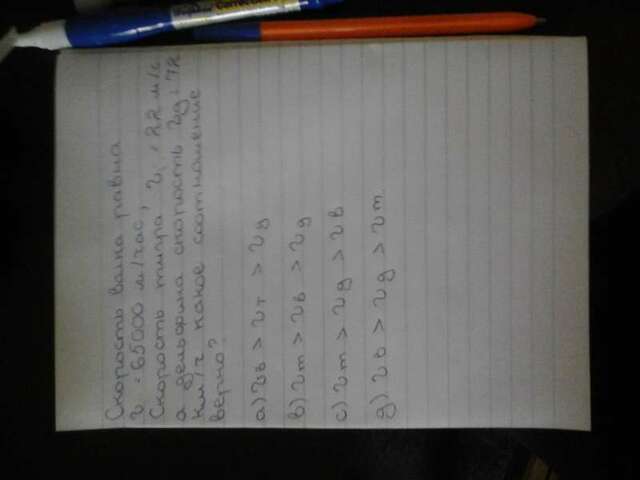 Скорость волка равна
v = 65000 м/час,
Скорость тигра v = 22 м/с
а дельфина скорость vд = 72
км/ч какое соотношение
верно?
а) vв > vт > vд
в) vт > vв > vд
с) vт > vд > vв
д) vв > vд > vт